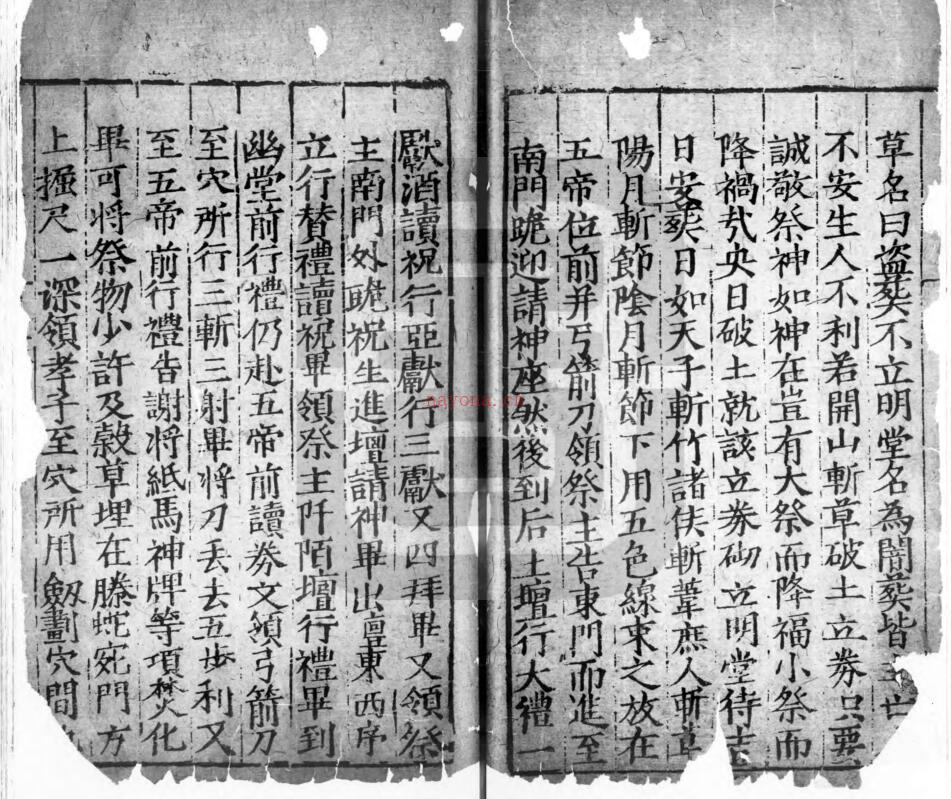 草名曰盗葬不立明堂名為闇葬皆
不安生人不利若開山斬草破土立券只要
誠敬祭神如神在豈有大祭而降福小祭而
降禍㢤央日破土就該立券砌立明堂待
日安葬日如天子斬竹諸侯斬葦庶人斬草
陽月斬節陰月斬節下用五色線束之放在
五帝位前并弓箭刀領祭主告東門而進至
南門跪迎請神座然後到后土壇行大禮一
獻酒讀祝行亞獻行三獻又四拜畢又領祭
主南門外跪祝生進壇請神畢出壇東西序
立行賛禮讀祝畢領祭主阡陌壇行禮畢到
幽堂前行禮仍赴五帝前讀券文領弓箭刀
至穴所行三斬三射畢將刀丢去五步利又
至五帝前行禮告謝將紙馬神牌等項焚化
畢可將祭物少許及穀草埋在螣蛇宛門方
上掘尺一深領孝子至穴所用劔劃穴間
nayona.cn